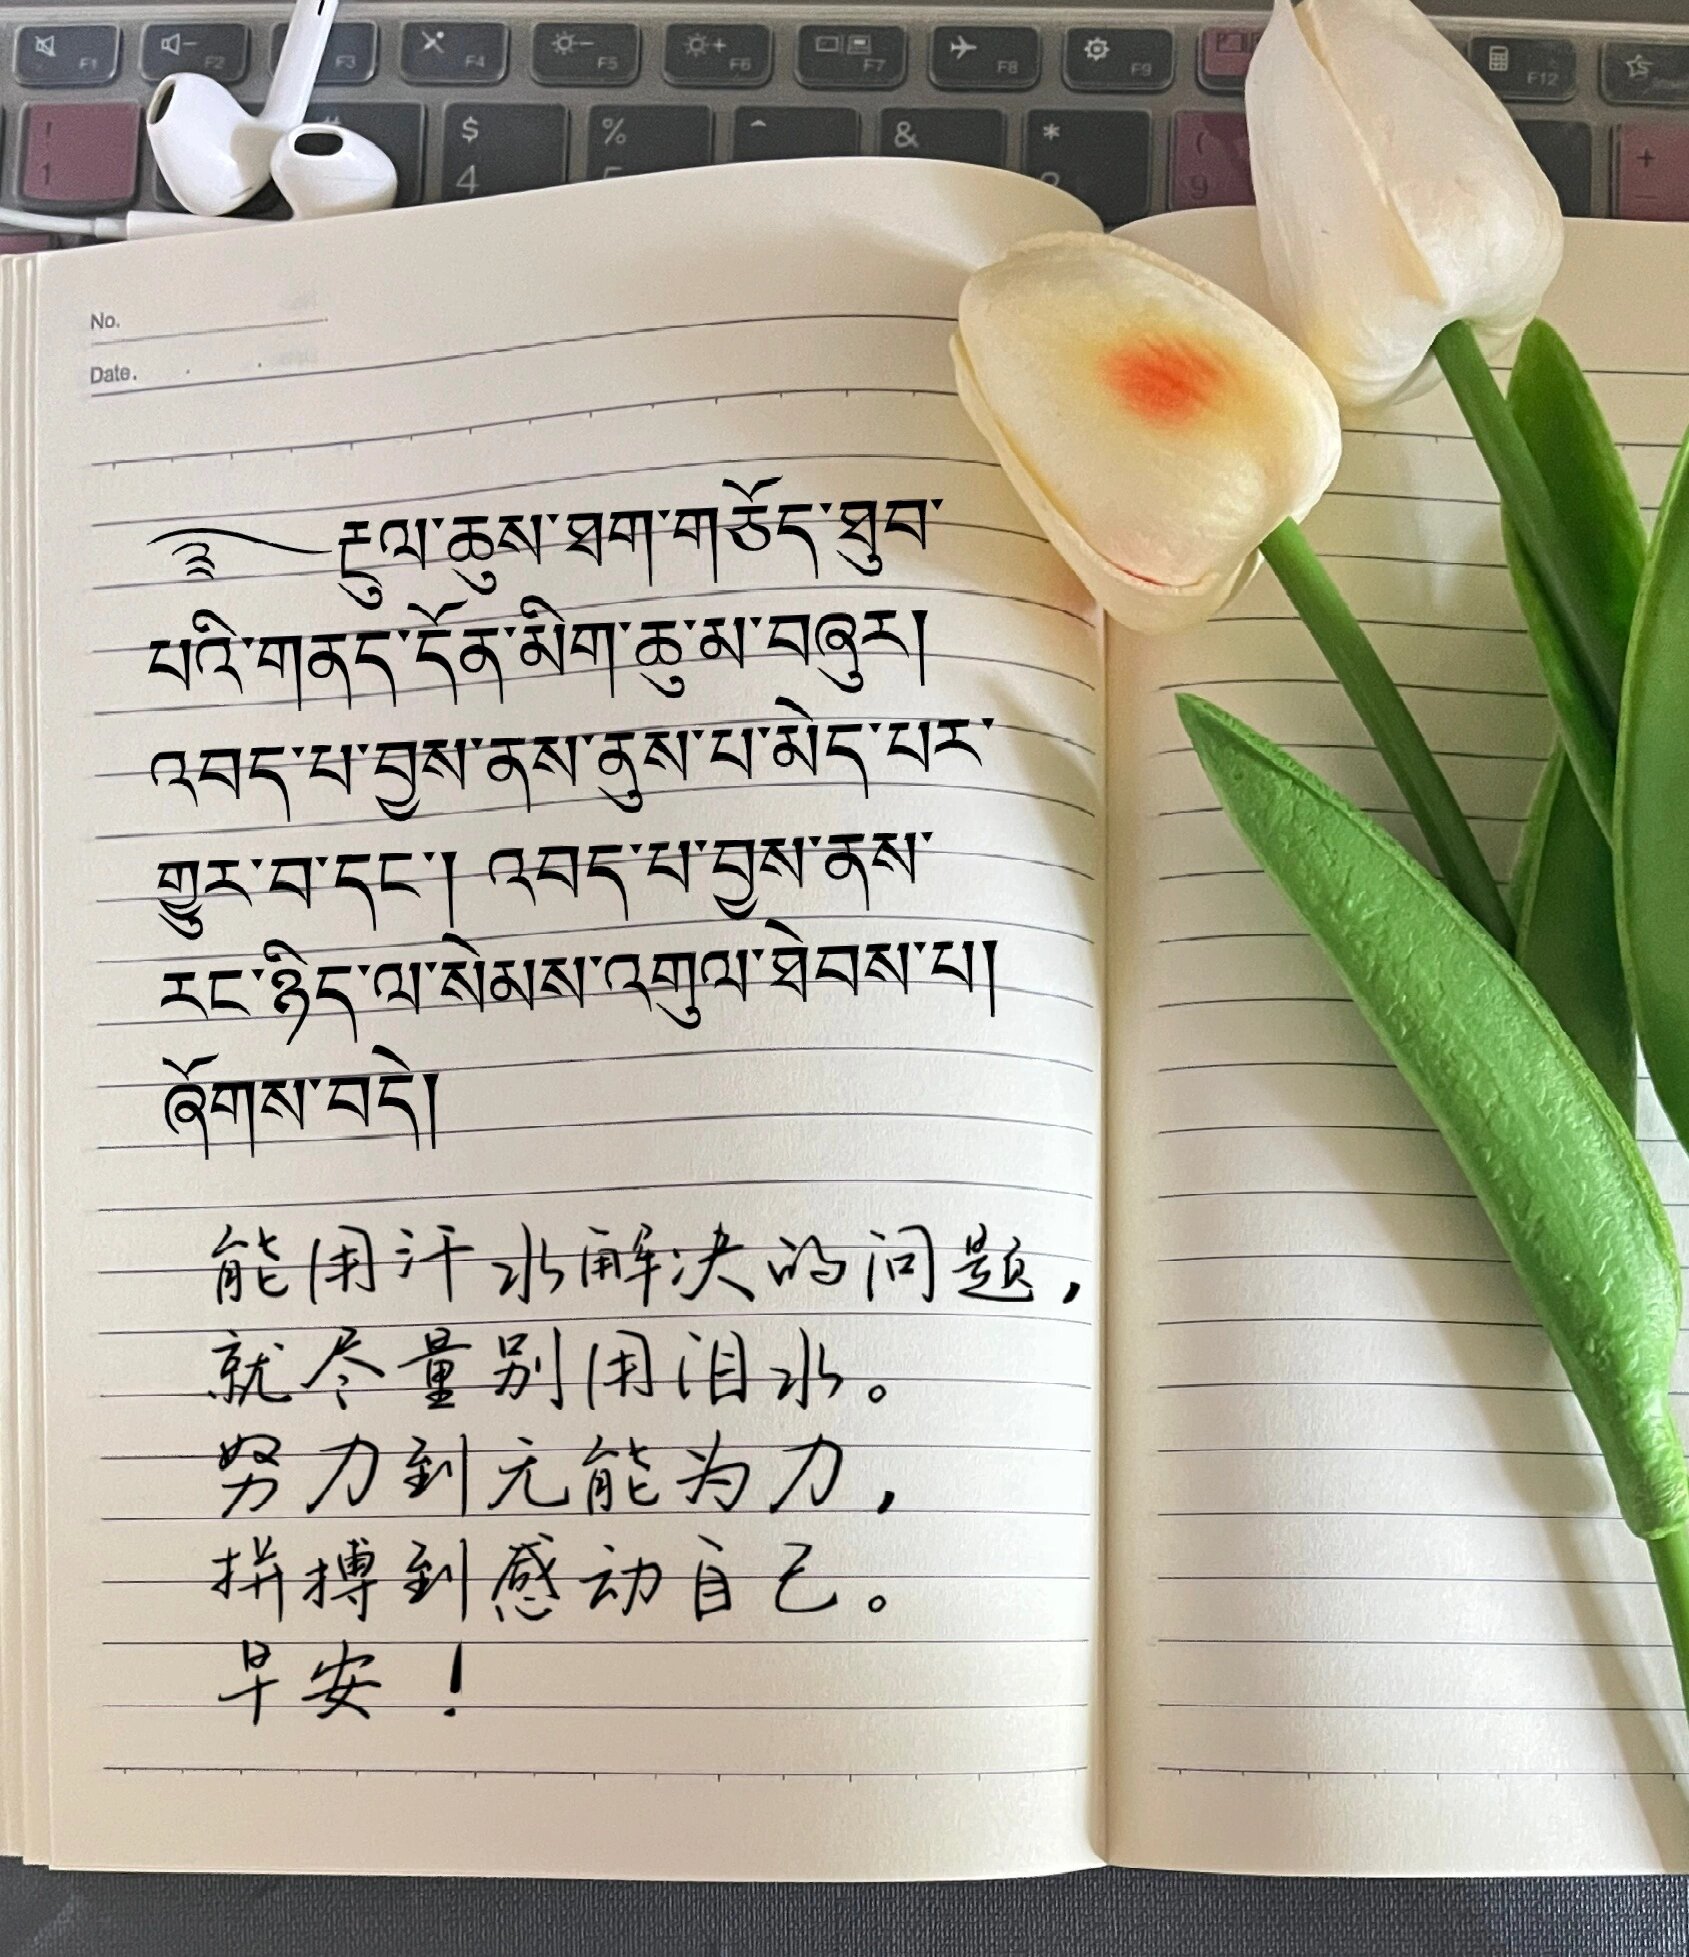 F1 F2 F3 F4 F5 F6 F7 F8 F9 F12
! # $ % ^ & * ( +
1 4 9 -
No.
Date.
༄ རྔུལ་ཆུས་ཐག་གཅོད་ཐུབ་
པའི་གནད་དོན་མིག་ཆུ་མ་བཞུར།
འབད་པ་བྱས་ནས་ནུས་པ་མེད་པར་
གྱུར་བ་དང་། འབད་པ་བྱས་ནས་
རང་ཉིད་ལ་སེམས་འགུལ་ཐེབས་པ།
ཞོགས་བདེ།
能用汗水解决的问题，
就尽量别用泪水。
努力到无能为力，
拼搏到感动自己。
早安！